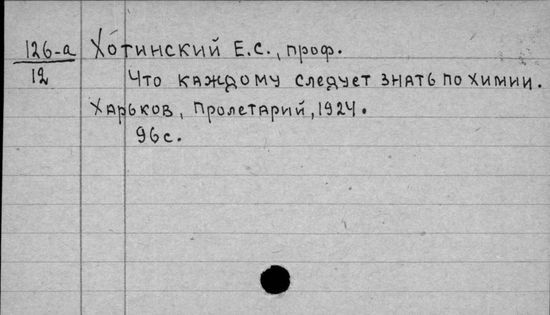 126-а Хотинский Е.С., проф.
12 Что каждому следует знать по химии.
Харьков, Пролетарий, 1924.
96 с.